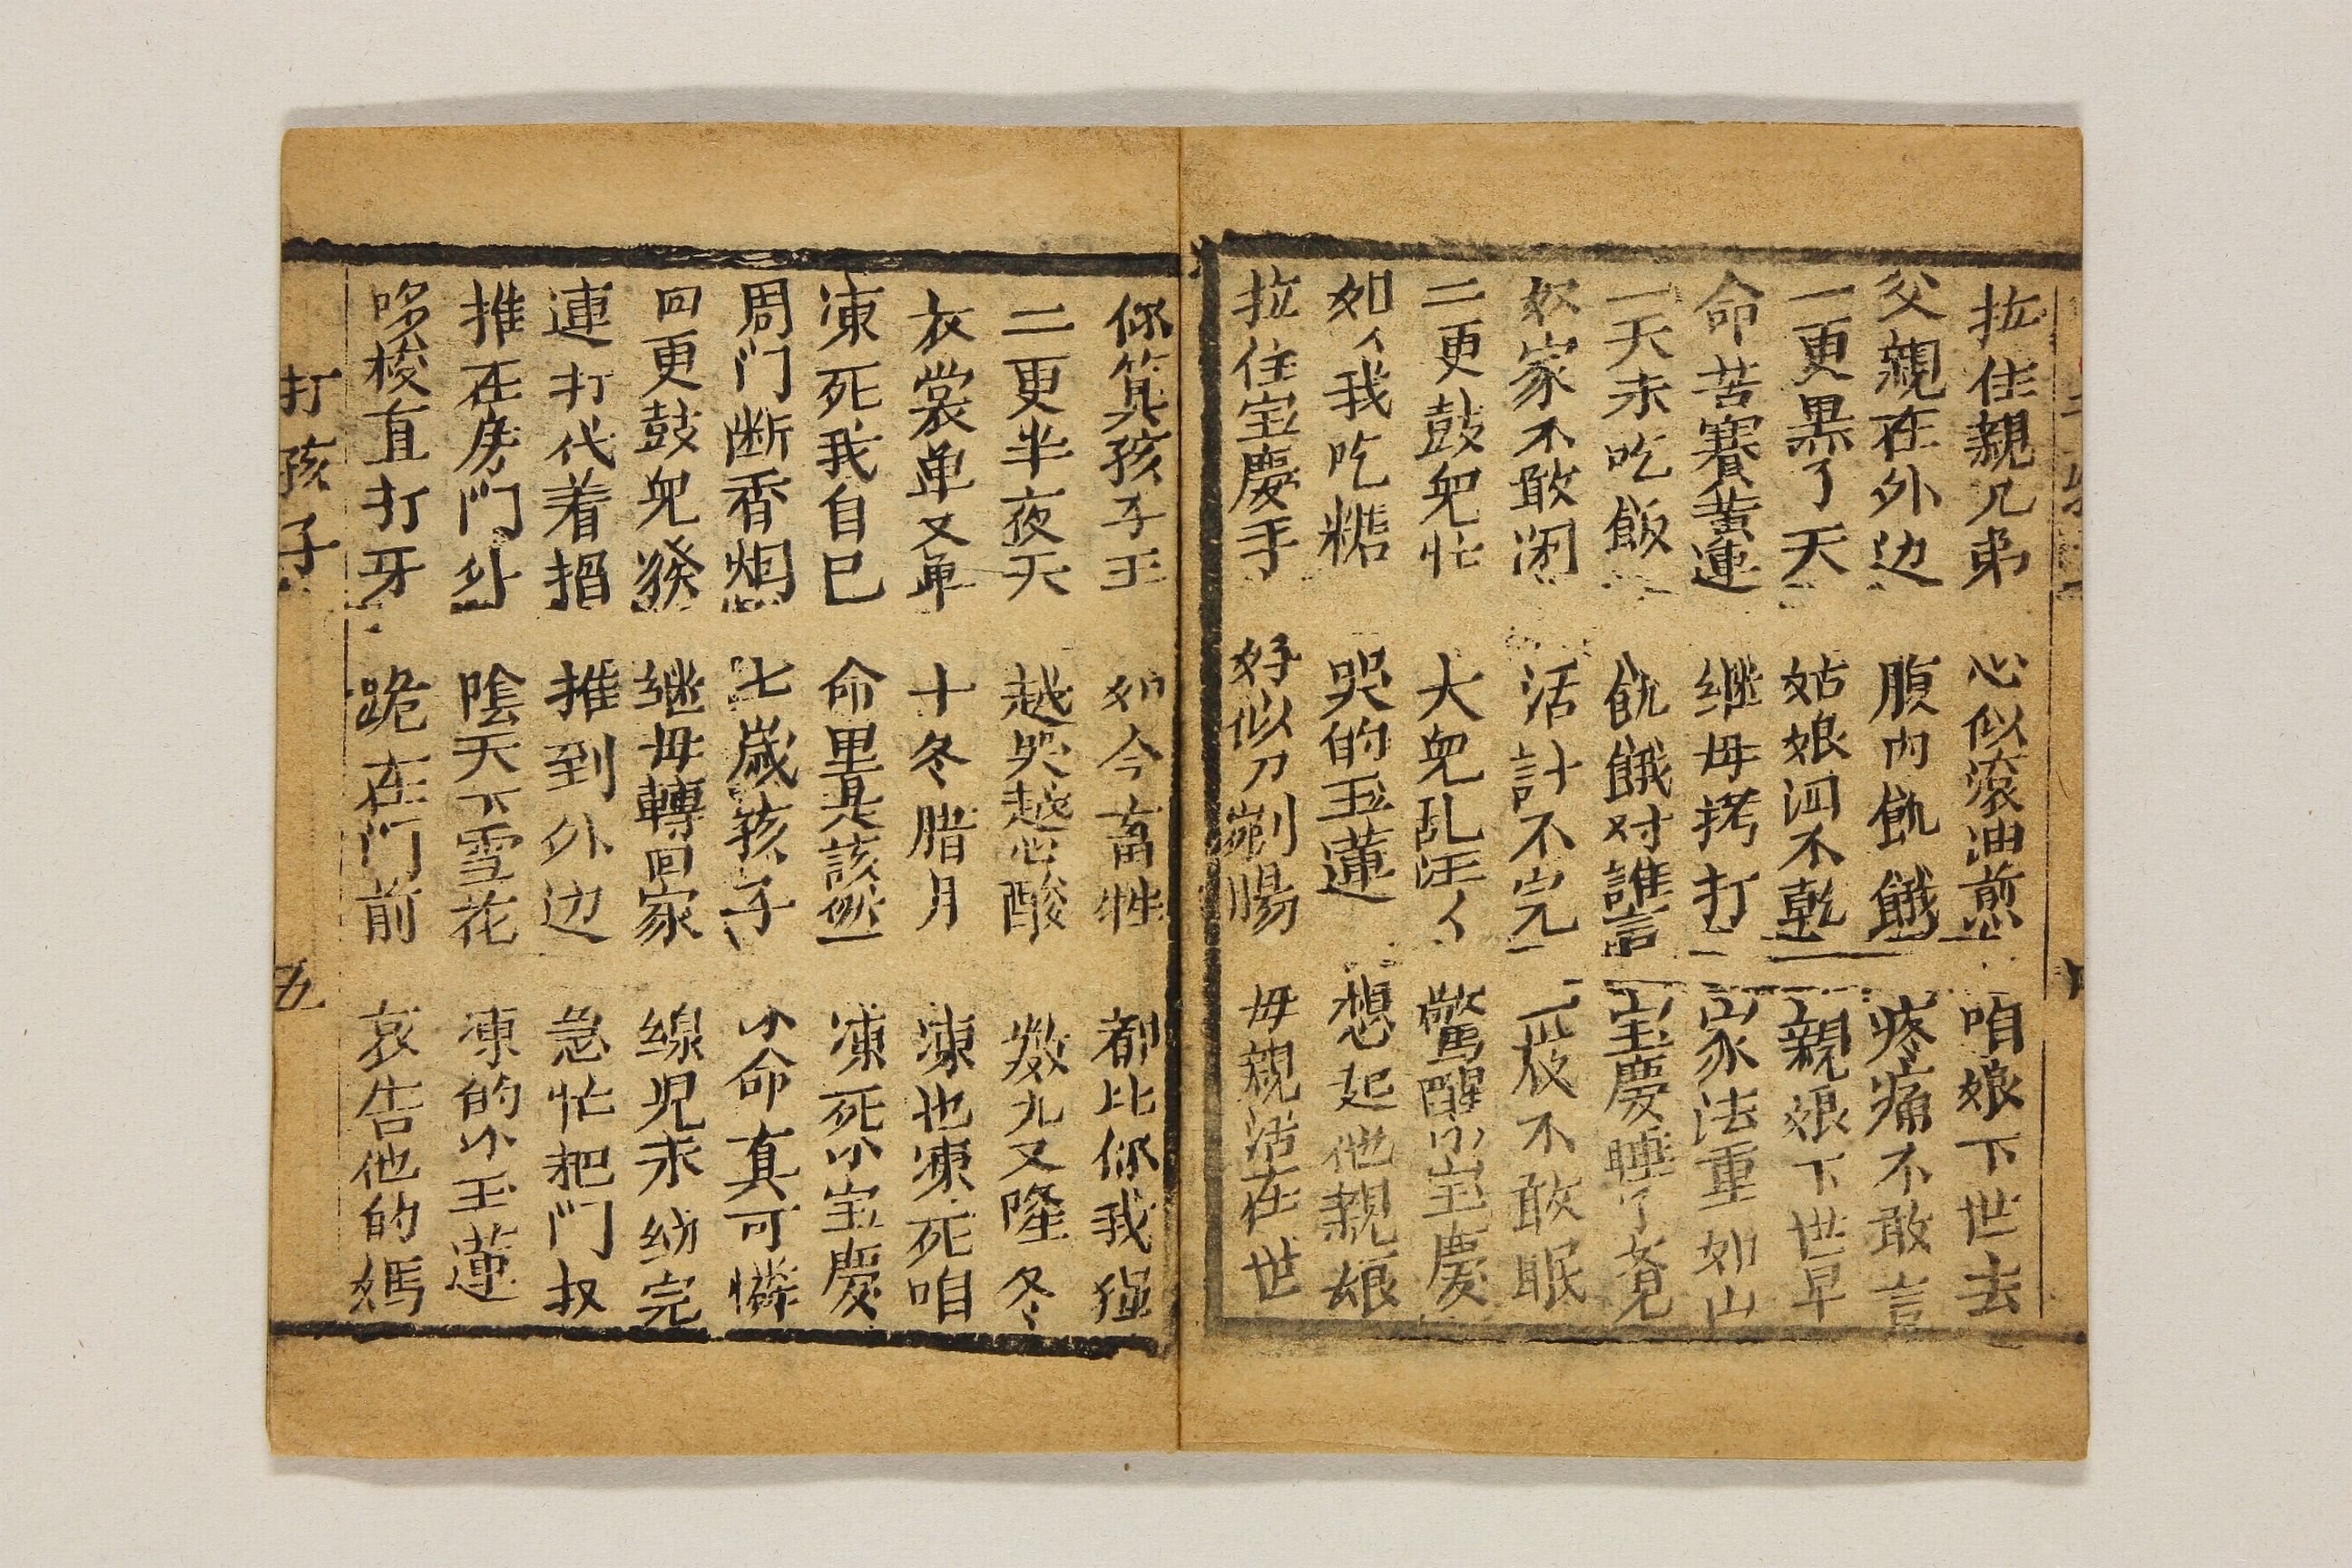 拉住親兄弟 心似滚油煎 咱娘下世去
父親在外边 腹内飢餓 疼痛不敢言
一更黑了天 姑娘泪不乾 親娘下世早
命苦賽黄連 继母拷打 家法重如山
一天未吃飯 飢餓对誰言 宝慶睡了覚
奴家不敢闲 活計不完 一夜不敢眠
二更鼓兒忙 大兒乱汪人 驚醒小宝慶
如人我吃糖 哭的玉蓮 想起他親娘
拉住宝慶手 好似刀剜腸 毋親活在世
你算孩子王 如今畜牲 都比你我强
二更半夜天 越哭越心酸 数九又隆冬
衣裳单又单 十冬腊月 凍也凍死咱
凍死我自己 命里是該然 凍死小宝慶
周门断香烟 七歳孩子 小命真可憐
回更鼓兒發 继毋轉回家 線兒未纺完
連打代着掐 推到外边 急忙把门扠
推在房门外 陰天下雪花 凍的小玉蓮
哆梭直打牙 跪在门前 哀告他的媽
打孩子 五